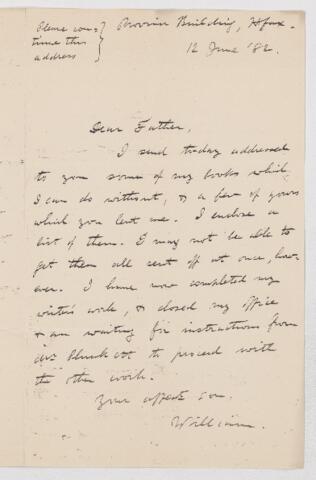 Please con-
tinue this
address
Province Building, Hfax.
12 June '82.
Dear Father,
I send to-day addressed
to you some of my books which
I can do without, & a few of yours
which you lent me. I enclose a
list of them. I may not be able to
get them all sent off at once, how-
ever. I have now completed my
winter's work, & closed my office
& am waiting for instructions from
to proceed with
the other work.
Your affect. son.
William.